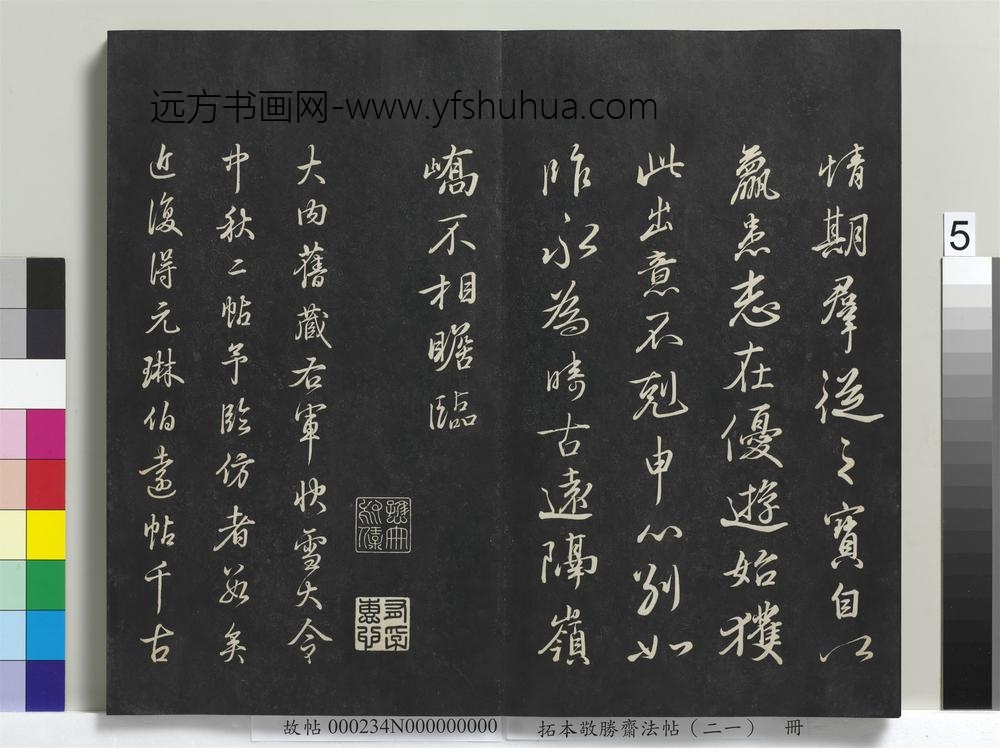 远方书画网-www.yfshuhua.com
情期群從之寶自以
羸患志在優遊始獲
此出意不剋申分別如
昨永為疇古遠隔嶺
嶠不相瞻臨
大内舊藏右軍快雪大令
中秋二帖予臨仿者數矣
近復得元琳伯遠帖千古
5
故帖 000234N000000000
拓本敬勝齋法帖（二一） 冊